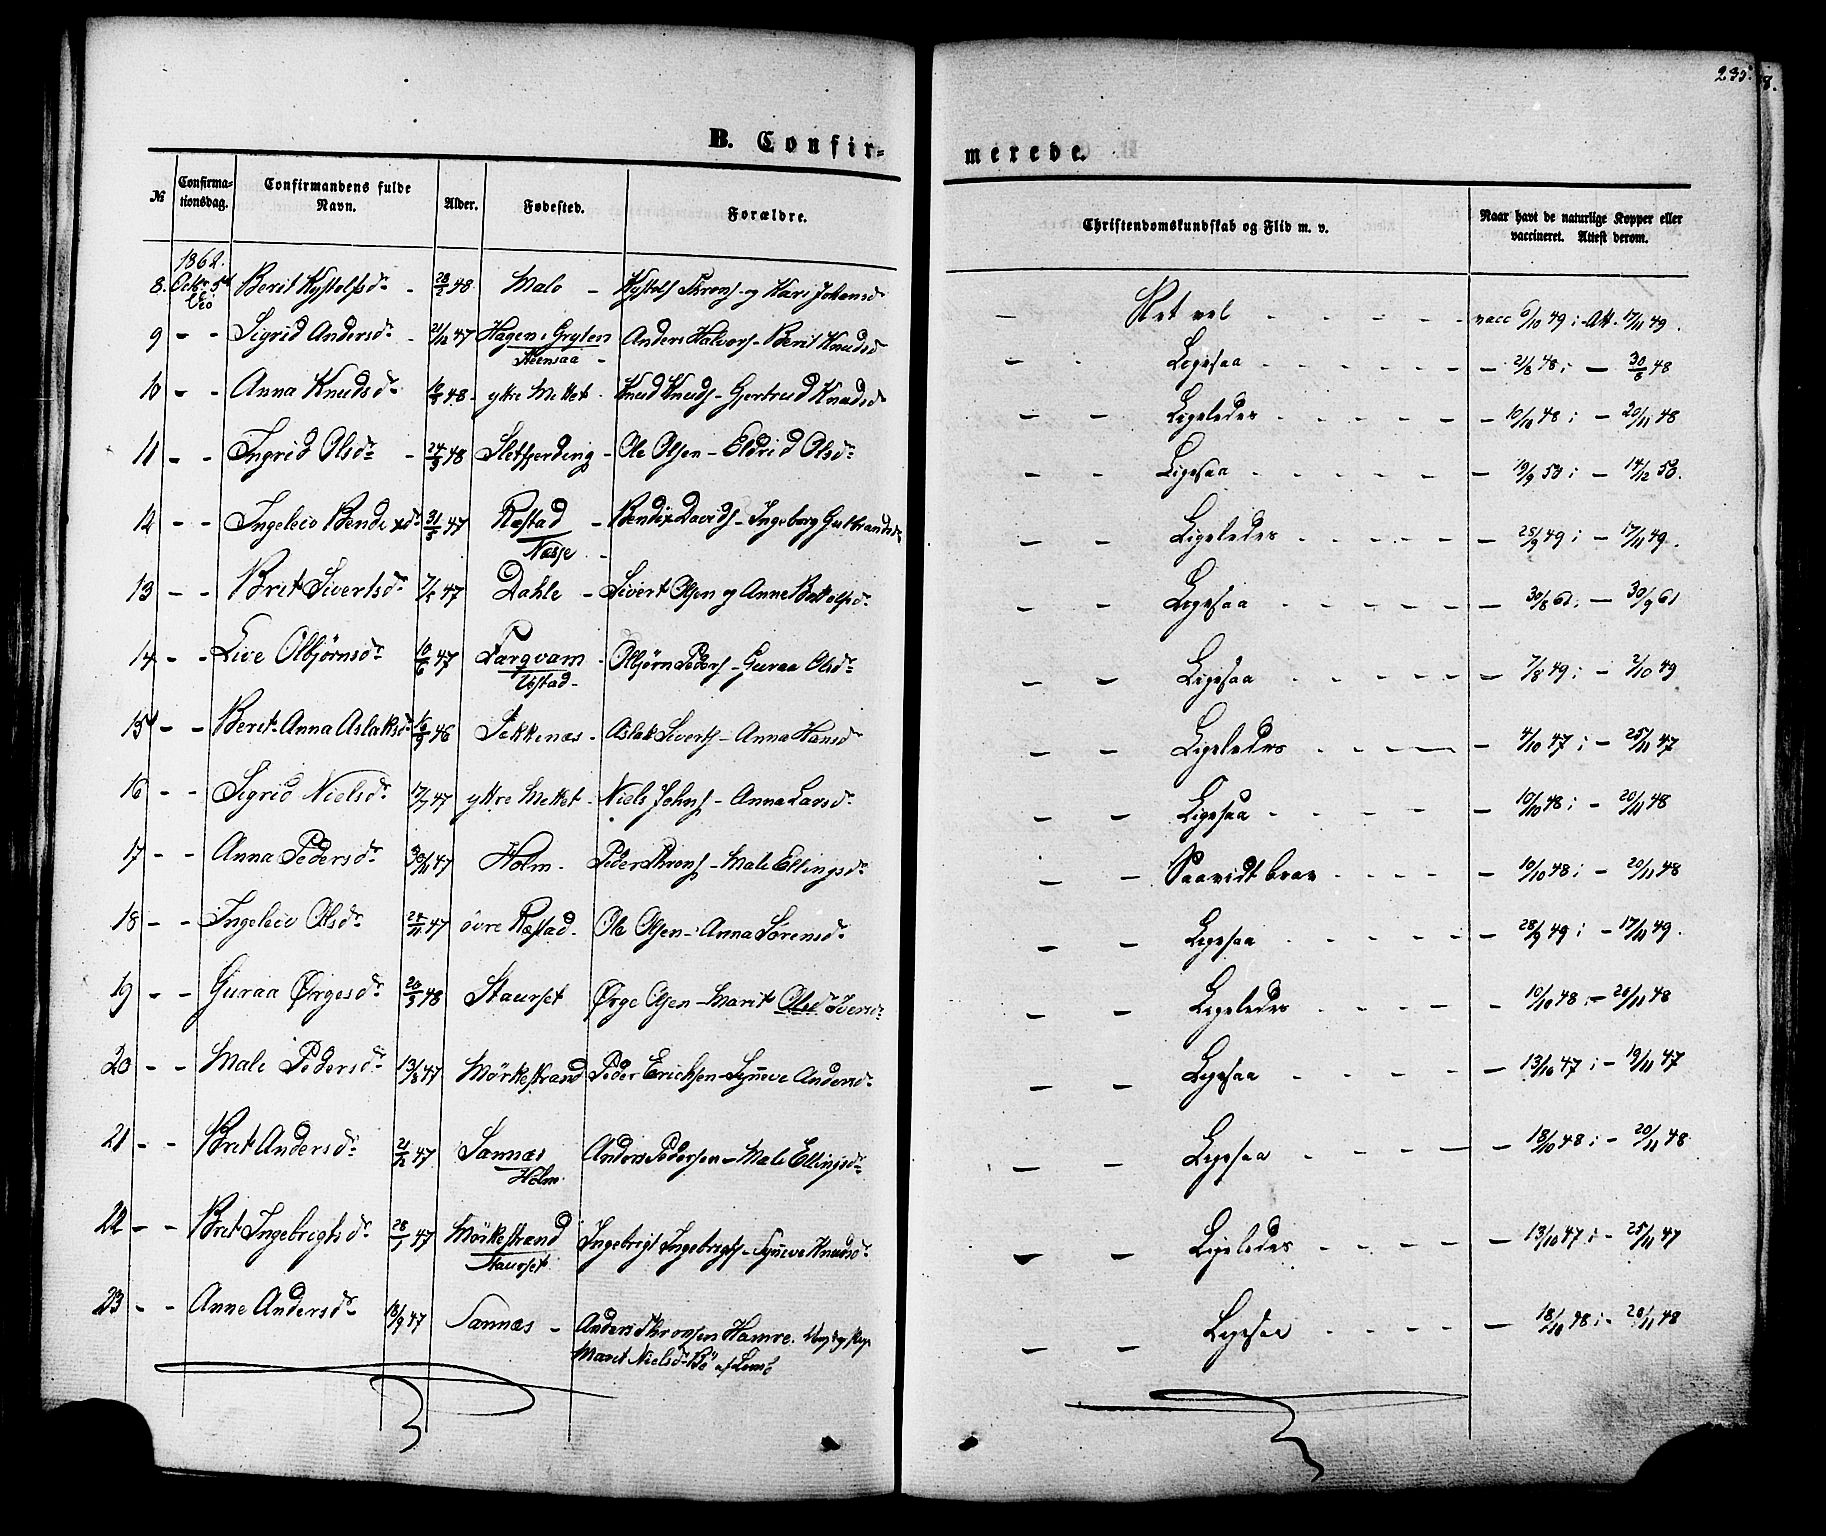 235.
8.
B. Confir-
merede.
№ Confirma-tionsdag. Confirmandens fulde Navn. Alder. Fødested. Forældre. Christendomskundskab og Flid m. v. Naar havt de naturlige Kopper eller vaccineret. Attest derom.
1862.
8. Octbr 5te Berit Kystolfsdr - 48. Malo - Kystolf Thronds. og Kari Johansd - Ret vel - - - - - vacc 6/10 49; Att. 17/11 49.
9 - - Sigrid Andersdr - 21/12 47 Hagen i Gryten Anders Halvors. - Berit Knudsd - - Ligesaa - - - - - 2/8 48; - 30/8 48
Steensaa -
10 - - Anna Knudsdr 48 - ytre Mettet - Knud Knuds. - Gjertrud Knudsd - - Ligeledes - - - - 10/10 48; - 20/11 48
11 - - Ingrid Olsdr - 24/3 48 Sletfjerding - Ole Olsen - Eldrid Olsdr - - Ligesaa - - - - - 19/9 53; - 14/12 53.
12 - - Ingeleiv Bendixdr 31/5 47 Ræstad - Bendix Davids. - Ingeborg Gulbrandsdr - - Ligeledes - - - - 25/9 49; - 17/11 49.
Næsje -
13 - - Bret Sivertsdr 47 Dahle - Sivert Olsen og Anne Bottolfsdr - - Ligesaa - - - - - 30/8 61; - 30/9 61
14 - - Live Olbjørnsdr 10/6 47 Torgvam - Olbjørn Peders. - Guraa Olsdr - - Ligesaa - - - - - 7/8 49; - 2/10 49
Ustad -
15 - - Berit Anna Aslaksdr 46 Sekkenæs - Aslak Siverts. - Anna Hansdr - - Ligeledes - - - 4/10 47; - 25/11 47
16 - - Sigrid Nielsdr 17/7 47 ytre Mettet - Niels Johns. - Anna Larsdr - - Ligesaa - - - - 10/10 48; - 20/11 48
17 - - Anna Pedersdr 30/11 47 Holm - Peder Thronds. - Mali Ellingsdr - - Saavidt brav - - - - - 10/10 48; - 20/11 48
18 - - Ingeleiv Olsdr 47 övre Ræstad - Ole Olsen - Anna Sørensdr - - Ligesaa - - - - - 28/9 49; - 17/11 49.
19 - - Guraa Ørgesdr 20/3 48 Staurset Ørge Olsen - Marit Olsdr Iversdr - - Ligeledes - - - 10/10 48; - 20/11 48
20 - - Mali Pedersdr 13/8 47 Mörkestrand Peder Erichsen - Synneve Andersdr - - Ligesaa - - - - - 13/10 47; - 19/11 47
21 - - Bret Andersdr 21/12 47 Sannæs Anders Pedersen - Mali Ellingsdr - - Ligesaa - - - - - 18/10 48; - 20/11 48
Holm
22 - - Bret Ingebrigtsdr 47 Mörkestrand Ingebrigt Ingebrigts. - Synneve Knudsdr - - Ligeledes - - - - 13/10 47; - 25/11 47
Staurset
23 - - Anne Andersdr 18/9 47 Sannæs - Anders Thronsen Hamre. Ung. og Pige - - Ligesaa - - - - - 18/10 48; - 20/11 48
Marit Nielsdr Bö af